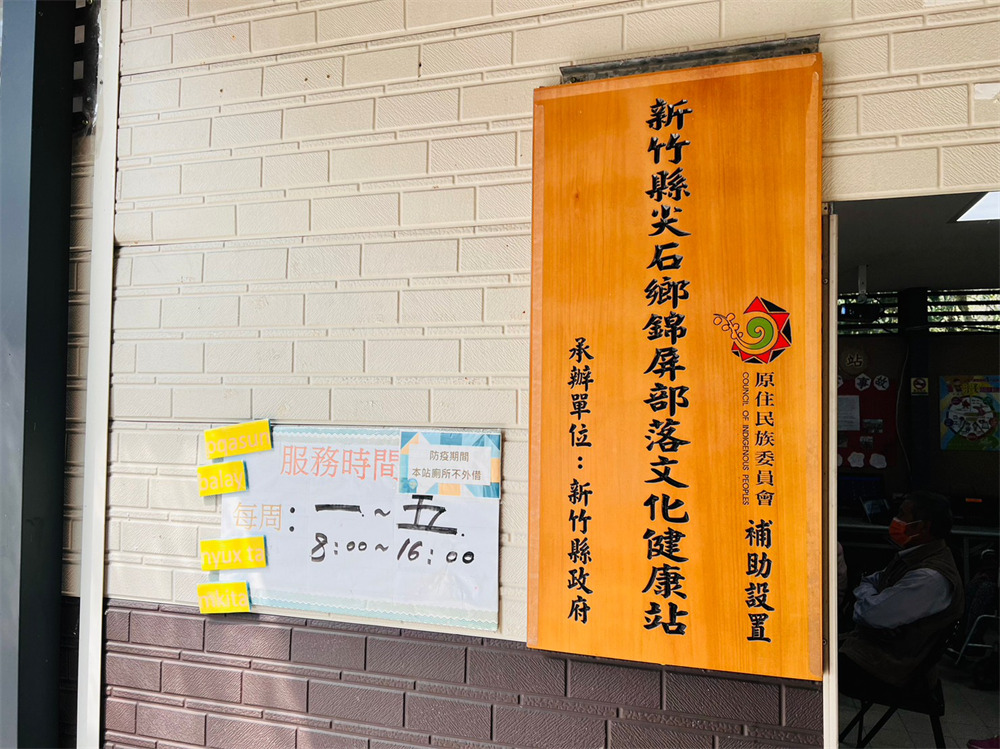 原住民族委員會
COUNCIL OF INDIGENOUS PEOPLES
補助設置
新竹縣尖石鄉錦屏部落文化健康站
承辦單位：新竹縣政府
服務時間
防疫期間
本站廁所不外借
每周：一.~五.
8:00~16:00
pqasun
balay
nyux ta
站